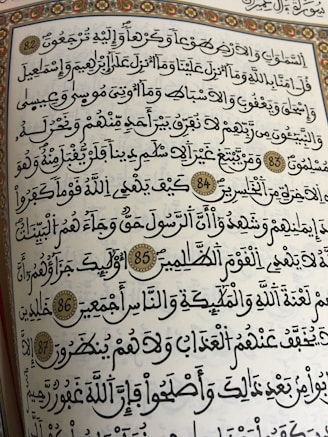 سورة آل عمران
السَّمَٰوَٰتِ وَالَارْضِ طَوْعاً وَكَرْهاً وَإِلَيْهِ تُرْجَعُونَ 82
قُلَ ـامَنَّا بِاللَّهِ وَمَآ أُنزِلَ عَلَيْنَا وَمَآ أُنزِلَ عَلَىٰٓ إِبْرَٰهِيمَ وَإِسْمَٰعِيلَ
وَإِسْحَٰقَ وَيَعْقُوبَ وَالَاسْبَاطِ وَمَآ أُوتِيَ مُوسَىٰ وَعِيسَىٰ
وَالنَّبِيٓـُٔونَ مِن رَّبِّهِمْ لَا نُفَرِّقُ بَيْنَ أَحَدٍ مِّنْهُمْ وَنَحْنُ لَهُۥ
مُسْلِمُونَ 83 وَمَنْ يَّبْتَغِ غَيْرَ الِاسْلَٰمِ دِيناً فَلَنْ يُّقْبَلَ مِنْهُ وَهُوَ
الَاخِرَةِ مِنَ الْخَٰسِرِينَ 84 كَيْفَ يَهْدِي اللَّهُ قَوْماً كَفَرُواْ
إِيمَٰنِهِمْ وَشَهِدُوٓاْ أَنَّ الرَّسُولَ حَقٌّ وَجَآءَهُمُ الْبَيِّنَٰتُ
لَا يَهْدِي الْقَوْمَ الظَّٰلِمِينَ 85 أُوْلَٰٓئِكَ جَزَآؤُهُمُۥٓ أَنَّ
لَعْنَةَ اللَّهِ وَالْمَلَٰٓئِكَةِ وَالنَّاسِ أَجْمَعِينَ 86 خَٰلِدِينَ
لَا يُخَفَّفُ عَنْهُمُ الْعَذَابُ وَلَا هُمْ يُنظَرُونَ 87 إِلَّا
مِنۢ بَعْدِ ذَٰلِكَ وَأَصْلَحُواْ فَإِنَّ اللَّهَ غَفُورٌ رَّحِيمٌ